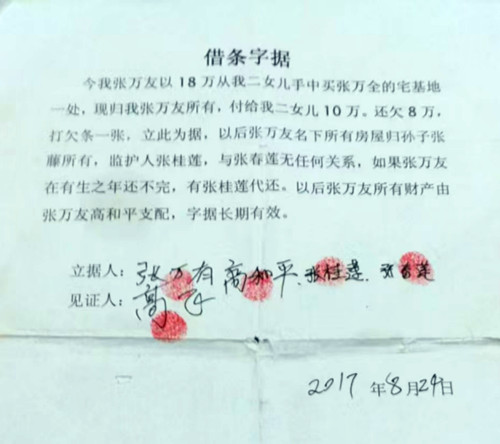 借条字据
今我张万友以18万从我二女儿手中买张万全的宅基地
一处，现归我张万友所有，付给我二女儿10万。还欠8万，
打欠条一张，立此为据，以后张万友名下所有房屋归孙子张
藤所有，监护人张桂莲，与张春莲无任何关系，如果张万友
在有生之年还不完，有张桂莲代还。以后张万友所有财产由
张万友高和平支配，字据长期有效。
立据人：张万有 高和平、张桂莲、张春莲
见证人：高
2017年8月29日